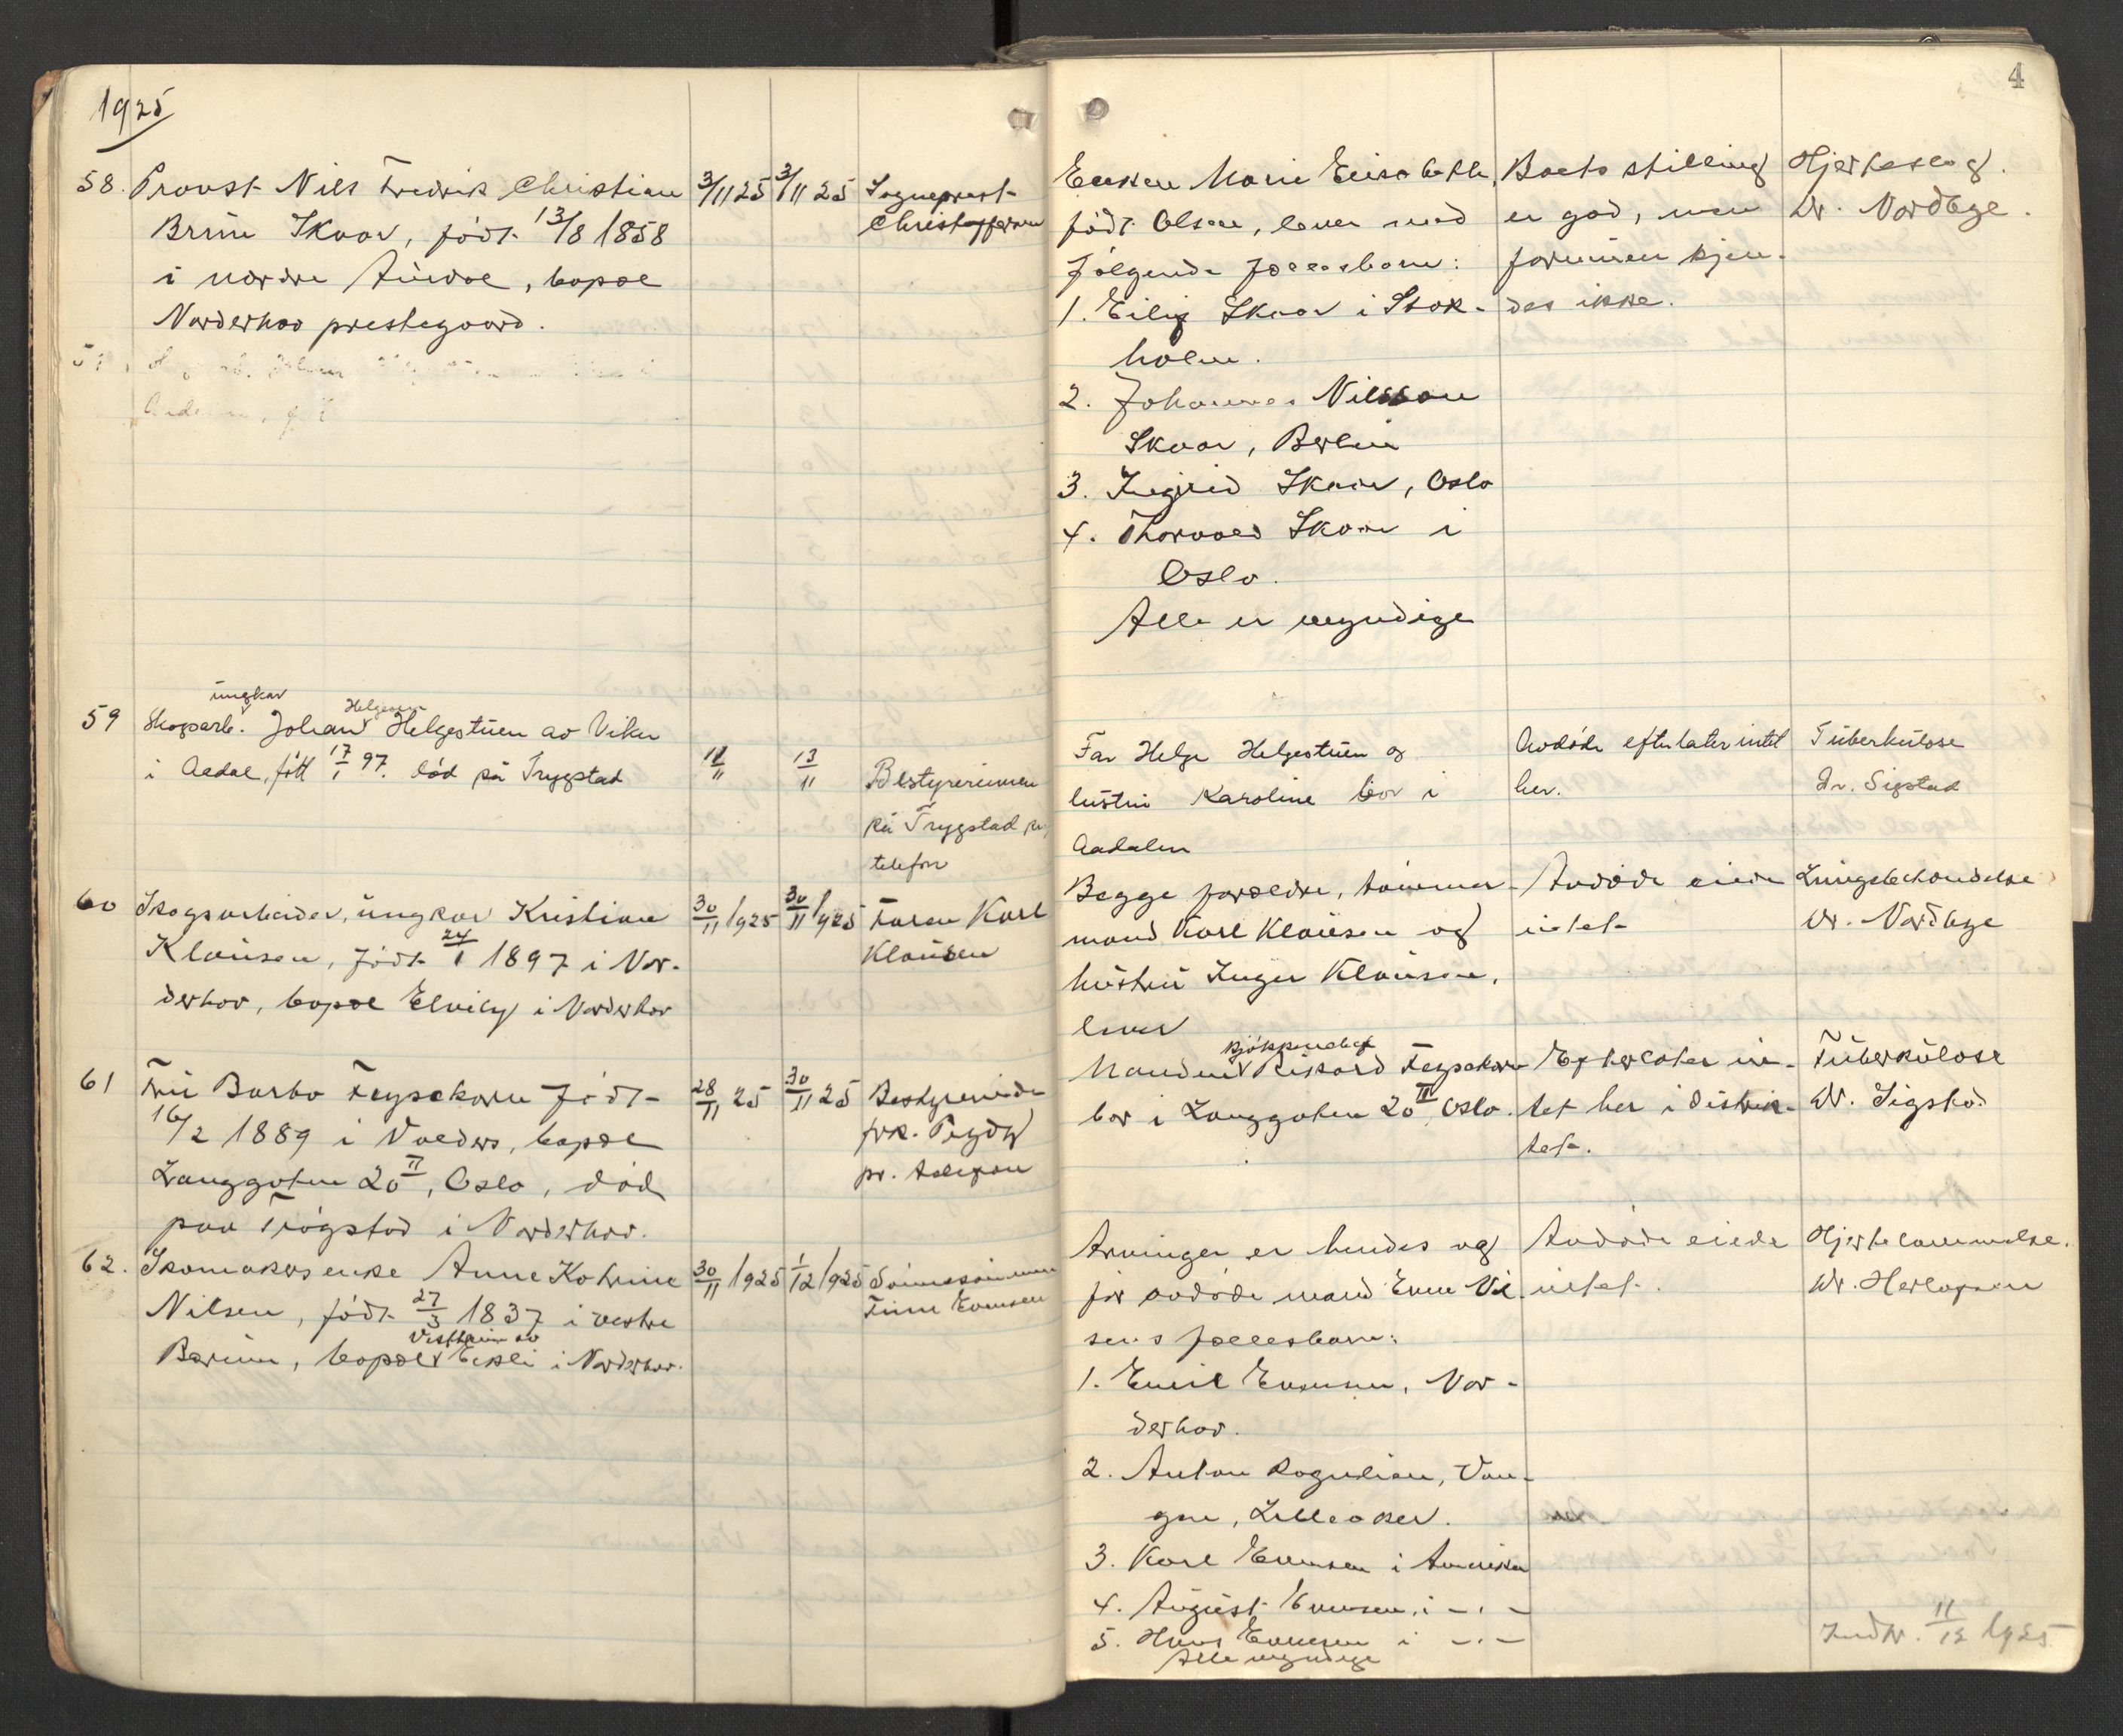 1925
4
58. Provst Nils Fredrik Christian
Bruun Skaar, født 13/8 1858
i nordre Aurdal, bopæl
Norderhov prestegaard.
3/11 25
3/11 25
Sogneprest
Christoffersen
Enken Marie Elisabeth,
født Olsen, lever med
følgende fællesbarn:
1. Eilif Skaar i Stok-
holm.
2. Johannes Nilsson
Skaar, Berlin
3. Ingrid Skaar, Oslo
4. Thorvald Skaar i
Oslo.
Alle er myndige
Boets stilling
er god, men
formuen kjen-
des ikke.
Hjerteslag.
Dr. Nordbye.
59 Skogsarb. ungkar Johan Helgesen Helgestuen av Viker
i Aadal, født 17/1 97. død på Tryggstad
11/11
13/11
Bestyrerinnen
på Tryggstad pr.
telefon
Far Helge Helgestuen og
hustru Karoline bor i
Aadalen
Avdøde efterlater intet
her.
Tuberkulose
Dr. Sigstad
60 Skogsarbeider, ungkar Kristian
Klausen, født 24/1 1897 i Nor-
derhov, bopæl Elvily i Norderhov
30/11 1925
30/11 1925
Faren Karl
Klausen
Begge forældre, tømmer-
mand Karl Klausen og
hustru Inger Klausen,
lever
Avdøde eiede
intet
Lungebetændelse
Dr. Nordbye
61 Fru Barbo født
16/2 1889 i Valdres, bopæl
Langgaten 20 II, Oslo, død
paa Trøgstad i Norderhov.
28/11 25
30/11 25
Bestyrerinde
frk.
pr. telefon
Manden kjøkkenchef Rikard
bor i Langgaten 20 II, Oslo.
Efterlater in-
tet her i distrik-
tet.
Tuberkulose
Dr. Sigstad
62. Skomakerenke Anne Katrine
Nilsen, født 27/3 1837 i vestre
Bærum, bopæl Vestheim av Eikli i Norderhov.
30/11 1925
1/12 1925
Sønnesønnen
Finn Evensen
Arvinger er hendes og
før avdøde mand Even Nil-
sens fællesbarn:
1. Emil Evensen, Nor-
derhov.
2. Anton Vau-
gne, Lilleaker.
3. Karl Evensen i Amerika
4. August Evensen i -"-
5. Hans Evensen i -"-
Alle myndige
Avdøde eiede
intet.
Hjertelammelse.
Dr. Herlofsen
Indk. 11/12 1925